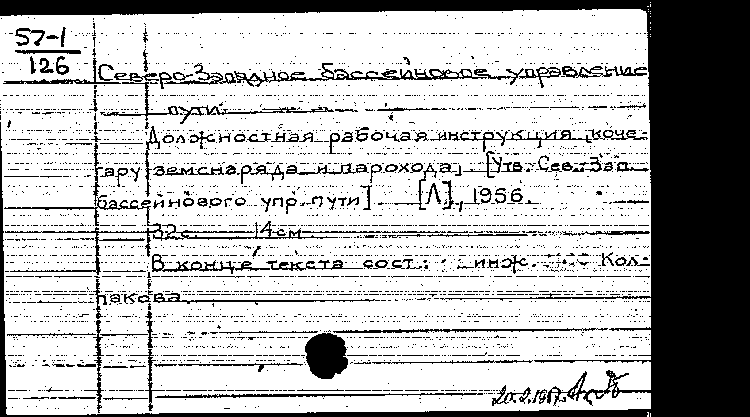 57-1
126
Северо-Западное бассейновое управление
пути.
Должностная рабочая инструкция [коче-
гару земснаряда и парохода]. [Утв. Сев.-Зап.
бассейнового упр. пути]. [Л], 1956.
32 с. 14 см
В конце текста сост.: инж. Кол-
пакова.